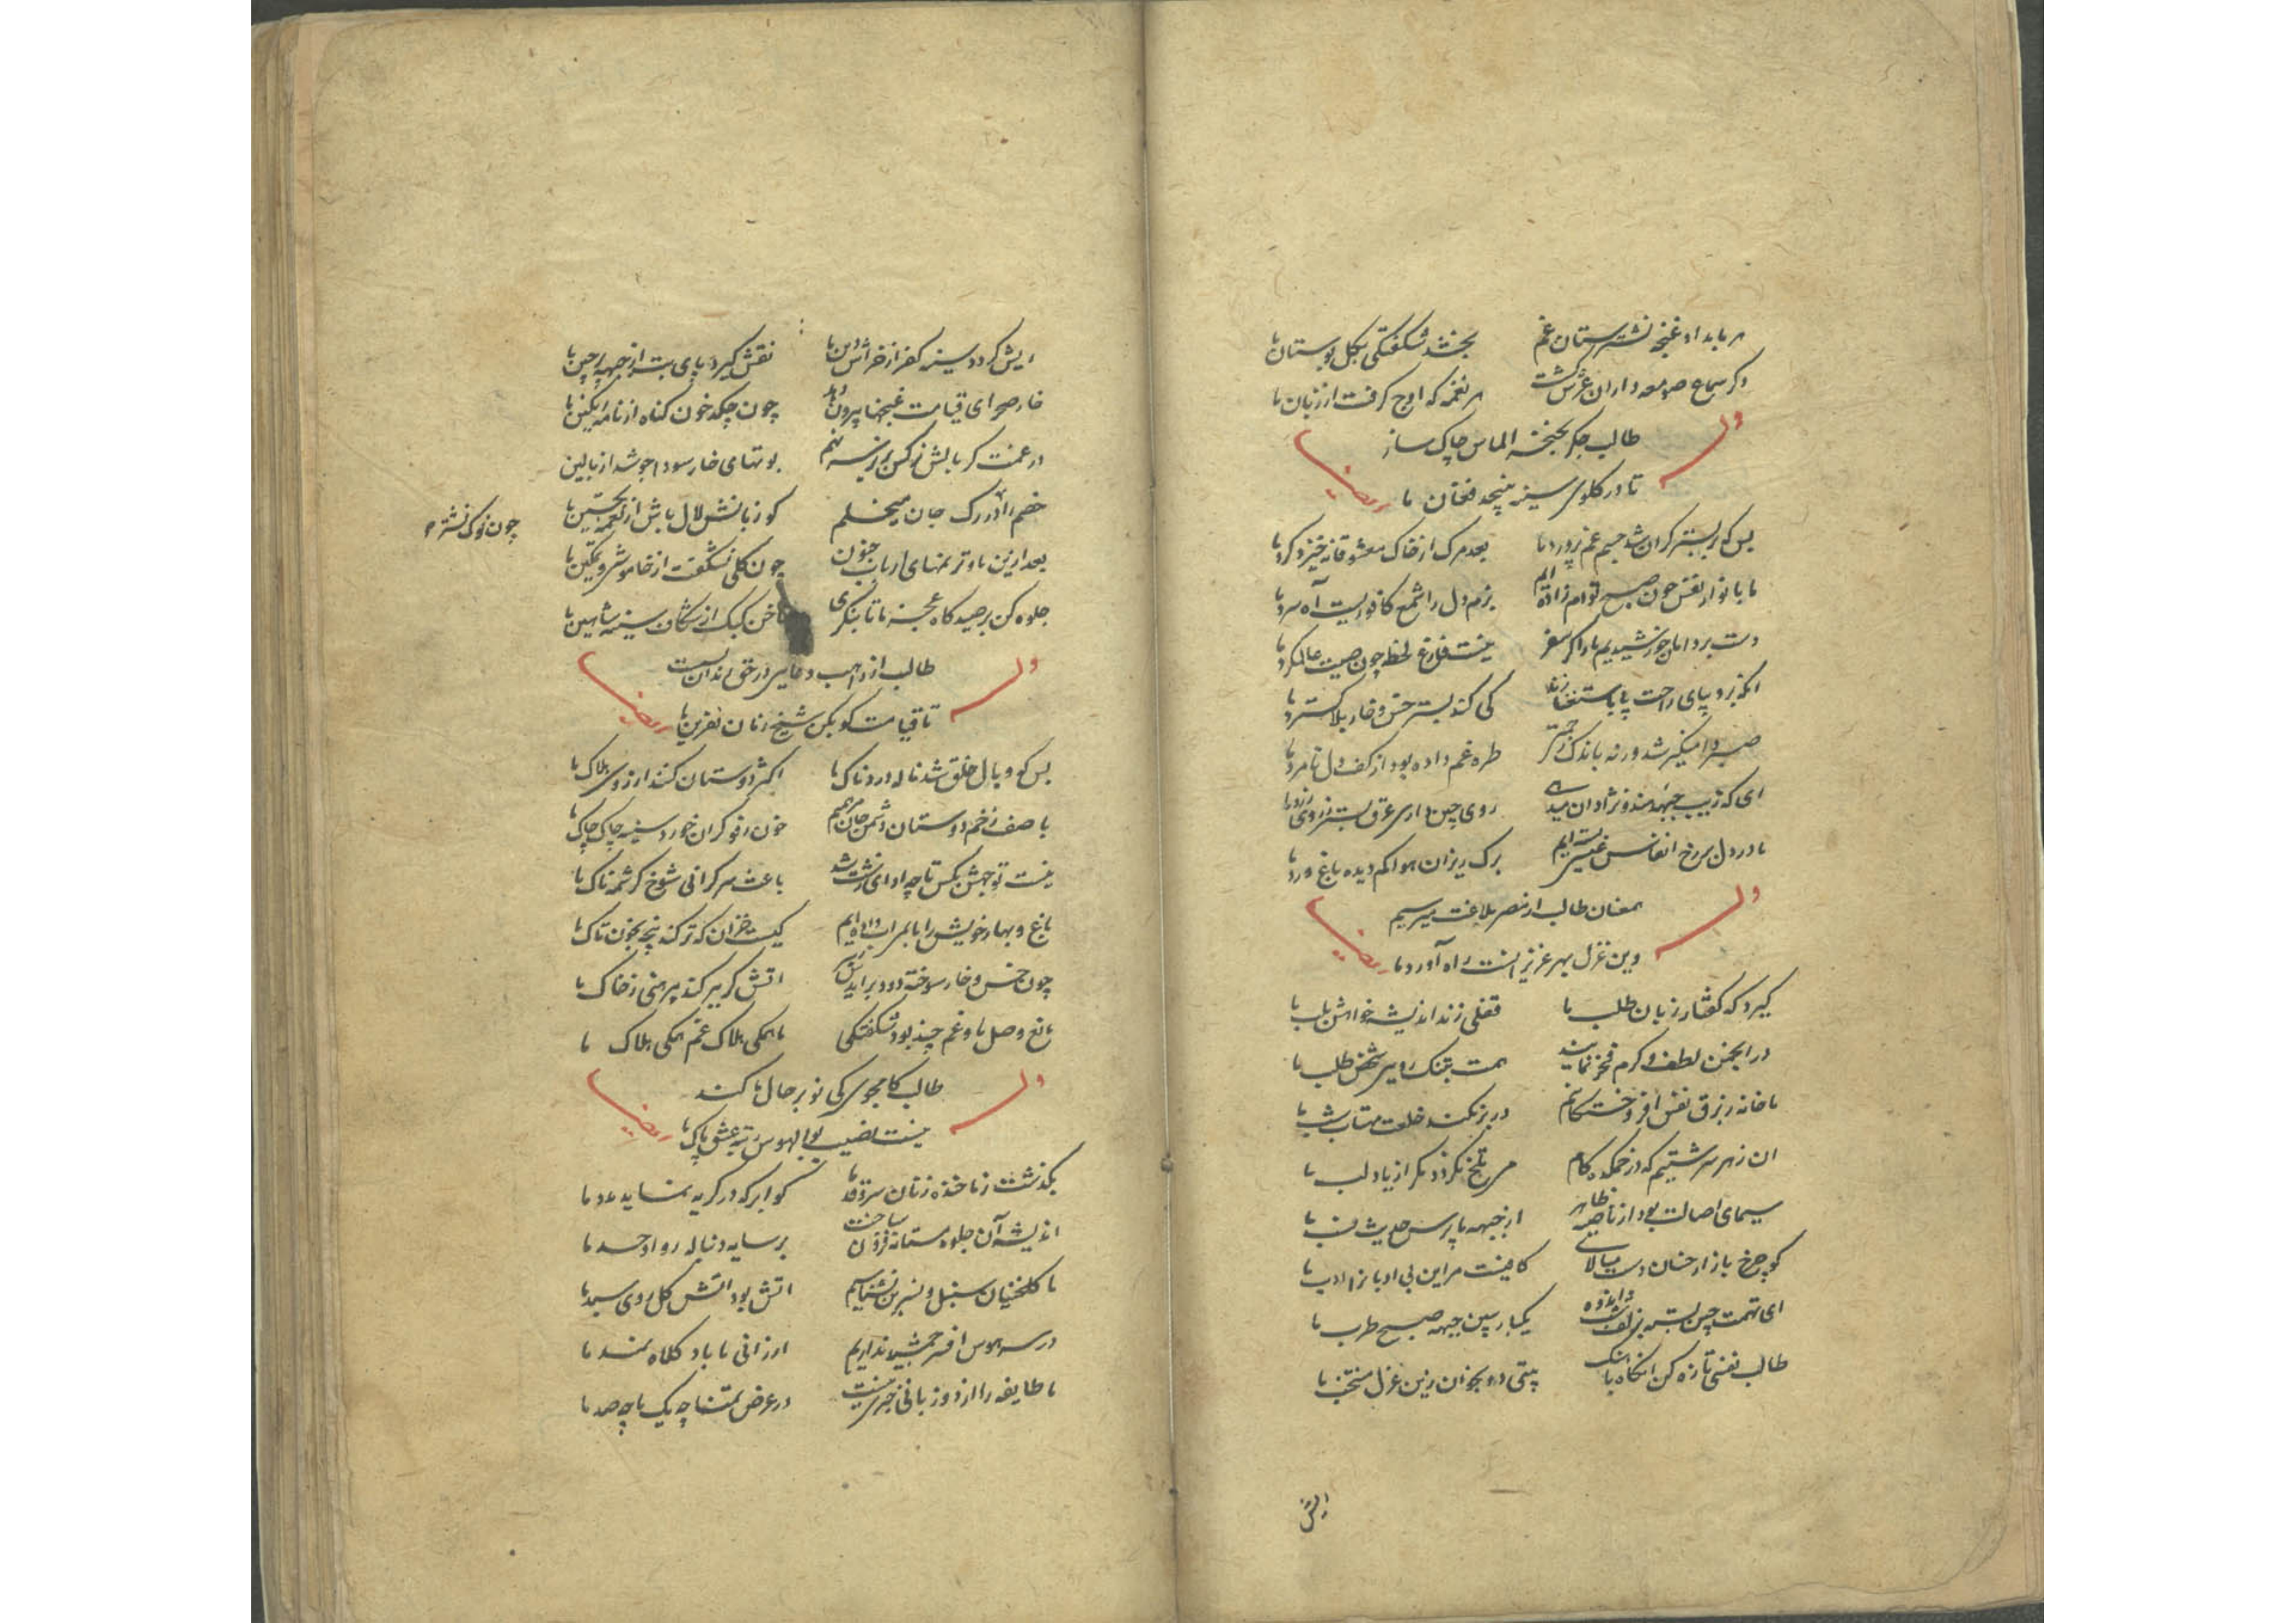 هر بامداد غنچه نشترستان غم بخشد شگفتگی بگل بوستان ما
ذکر سماع صومعه داران عرش گشت هر نغمه که اوج گرفت از زبان ما
طالب جگر بخنجر الماس چاک ساز
وله
تا در گلوی سینه نپیچد فغان ما
ایضا
بس که بر بستر گران شد جسم غم پرورد ما بعد مرگ از خاک معشوقانه خیزد گرد ما
ما با نواز نفس چون صبح توام زاده ایم بزم دل را شمع کافوریست آه سرد ما
دست بر دامان خورشیدیم ما را گر سفر نیست فارغ لحظه چون صیت عالمگرد ما
پای راحت پا باستغنا زند کی کند بستر خس و خار بلا گسترد ما
صبر دامنگیر شد ورنه باندک طره غم داده بود از کف دل نامرد ما
ای که زیب جبهه هندو نژادان روی چین داری عرق بستر ز روی زرد ما
ما در دل بر رخ انفاس عیسی بسته ایم برگ ریزان هوا کم دیده باغ ورد ما
همعنان طالب از مصر بلاغت میرسیم
وله
وین غزل بهر عزیز انست راه آورد ما
ایضا
گیرد که گفتار زبان طلب ما قفلی زند اندیشه خواهش بلب ما
در انجمن لطف و کرم فخر نمایند همت طلب ما
ما خانه ز برق نفس افروختگانیم در بر نکند خلعت مهتاب شب ما
ان زهر سرشتیم که در خمکده کام می تلخ نگردد مگر از یاد لب ما
سیمای اصالت بود از ناصیه ظاهر از جبهه ما پرس حدیث نسب ما
کو چرخ بازار خسان دست میالای کافیست مر این بی ادبان را ادب ما
ای تهمت چین بسته بزلف شب اندوه یکبار ببین جبهه صبح طرب ما
طالب نفسی تازه کن انگاه باهنگ بیتی دو بخوان زین غزل منتخب ما
اتش
ریش گردد سینه کفر از خراش دین ما نقش گیرد پای بت از جبهه پرچین ما
خار صحرای قیامت غنچها بیرون دهد چون چکد خون گناه از نامه رنگین ما
در غمت گر بالش نرگس بزیر سر نهم بوتهای خار سودا جوشد از بالین
خصم را در رگ جان میخلم کو زبانش لال باش از نغمه تحسین ما
چون نوک نشتر
بعد ازین ما و ترنمهای ارباب جنون چون گلی نشگفت از خاموشی و تمکین ما
جلوه کن بر صیدگاه عجز ما تا بنگری ناخن کبک از شگاف سینه شاهین ما
طالب از راهب دعایی در حق رندان بست
وله
تا قیامت گو بکن شیخ زنان نفرین ما
ایضا
بس که وبال خلق شد ناله دردناک ما اکثر دوستان کنند ارزوی هلاک ما
با صف زخم دوستان دشمن جان مرهمیم خون رفوگران خورد سینه چاک چاک ما
نیست توجهش بکس تا چه ادای زشت شد باعث سرگرانی شوخ کرشمه ناک ما
باغ و بهار خویش را ما بسراب داده ایم کیست خزان که تر کند پنجه بخون تاک ما
چون خس و خار سوخته دود براید اتش گر بر کند پیرهنی ز خاک ما
مانع وصل ما و غم چند بود شگفتگی ما همگی هلاک غم همگی هلاک ما
طالب کامجوی کی نوبر حال ما کند
وله
نیست نصیب بوالهوس رتبه عشق پاک ما
ایضا
بگذشت ز ما خنده زنان سرو قد ما کو ابر که در گریه نماید مدد ما
اندیشه آن جلوه مستانه فزون ساخت بر سایه دنباله رو او حسد ما
ما گلخنیان سنبل و نسرین نشناسیم اتش بود اتش گل روی سبد ما
در سر هوس افسر جمشید نداریم ارزانی ما باد کلاه نمد ما
ما طایفه را از دو زبانی خبری نیست در عرض تمنا چه یک ما چه صد ما